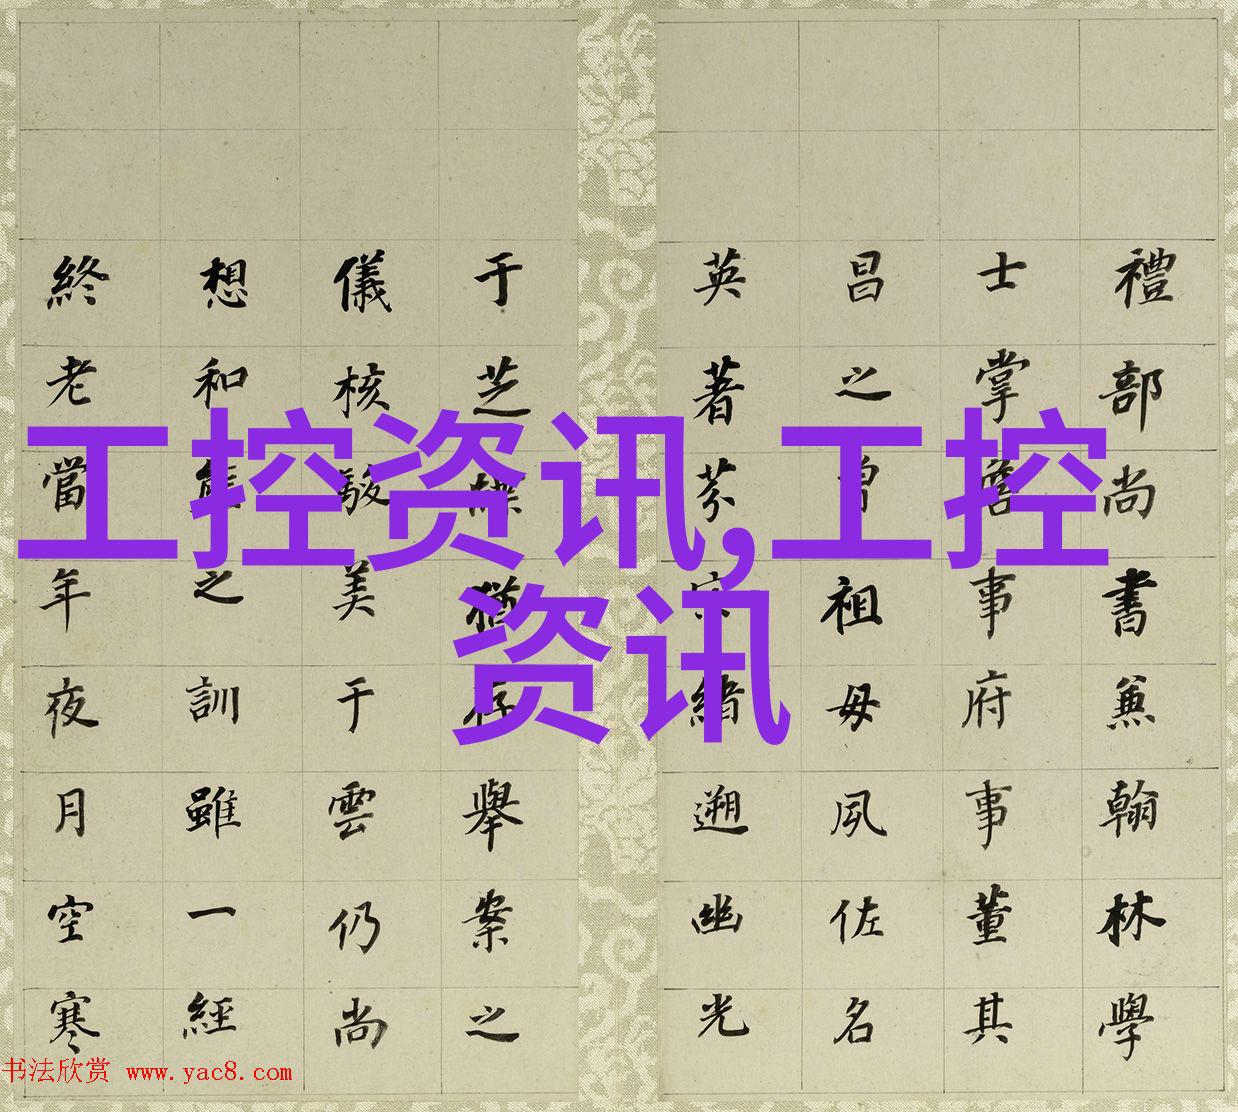 工控资讯,工控
资讯
禮部尚書兼翰林學
士掌詹事府事董其
昌之曾祖母夙佐名
英著芬緒遡幽光
于芝猶存舉案之
儀核駿美于雲仍尚
想和熊之訓雖一經
終老當年夜月空寒
书法欣赏 www.yac8.com